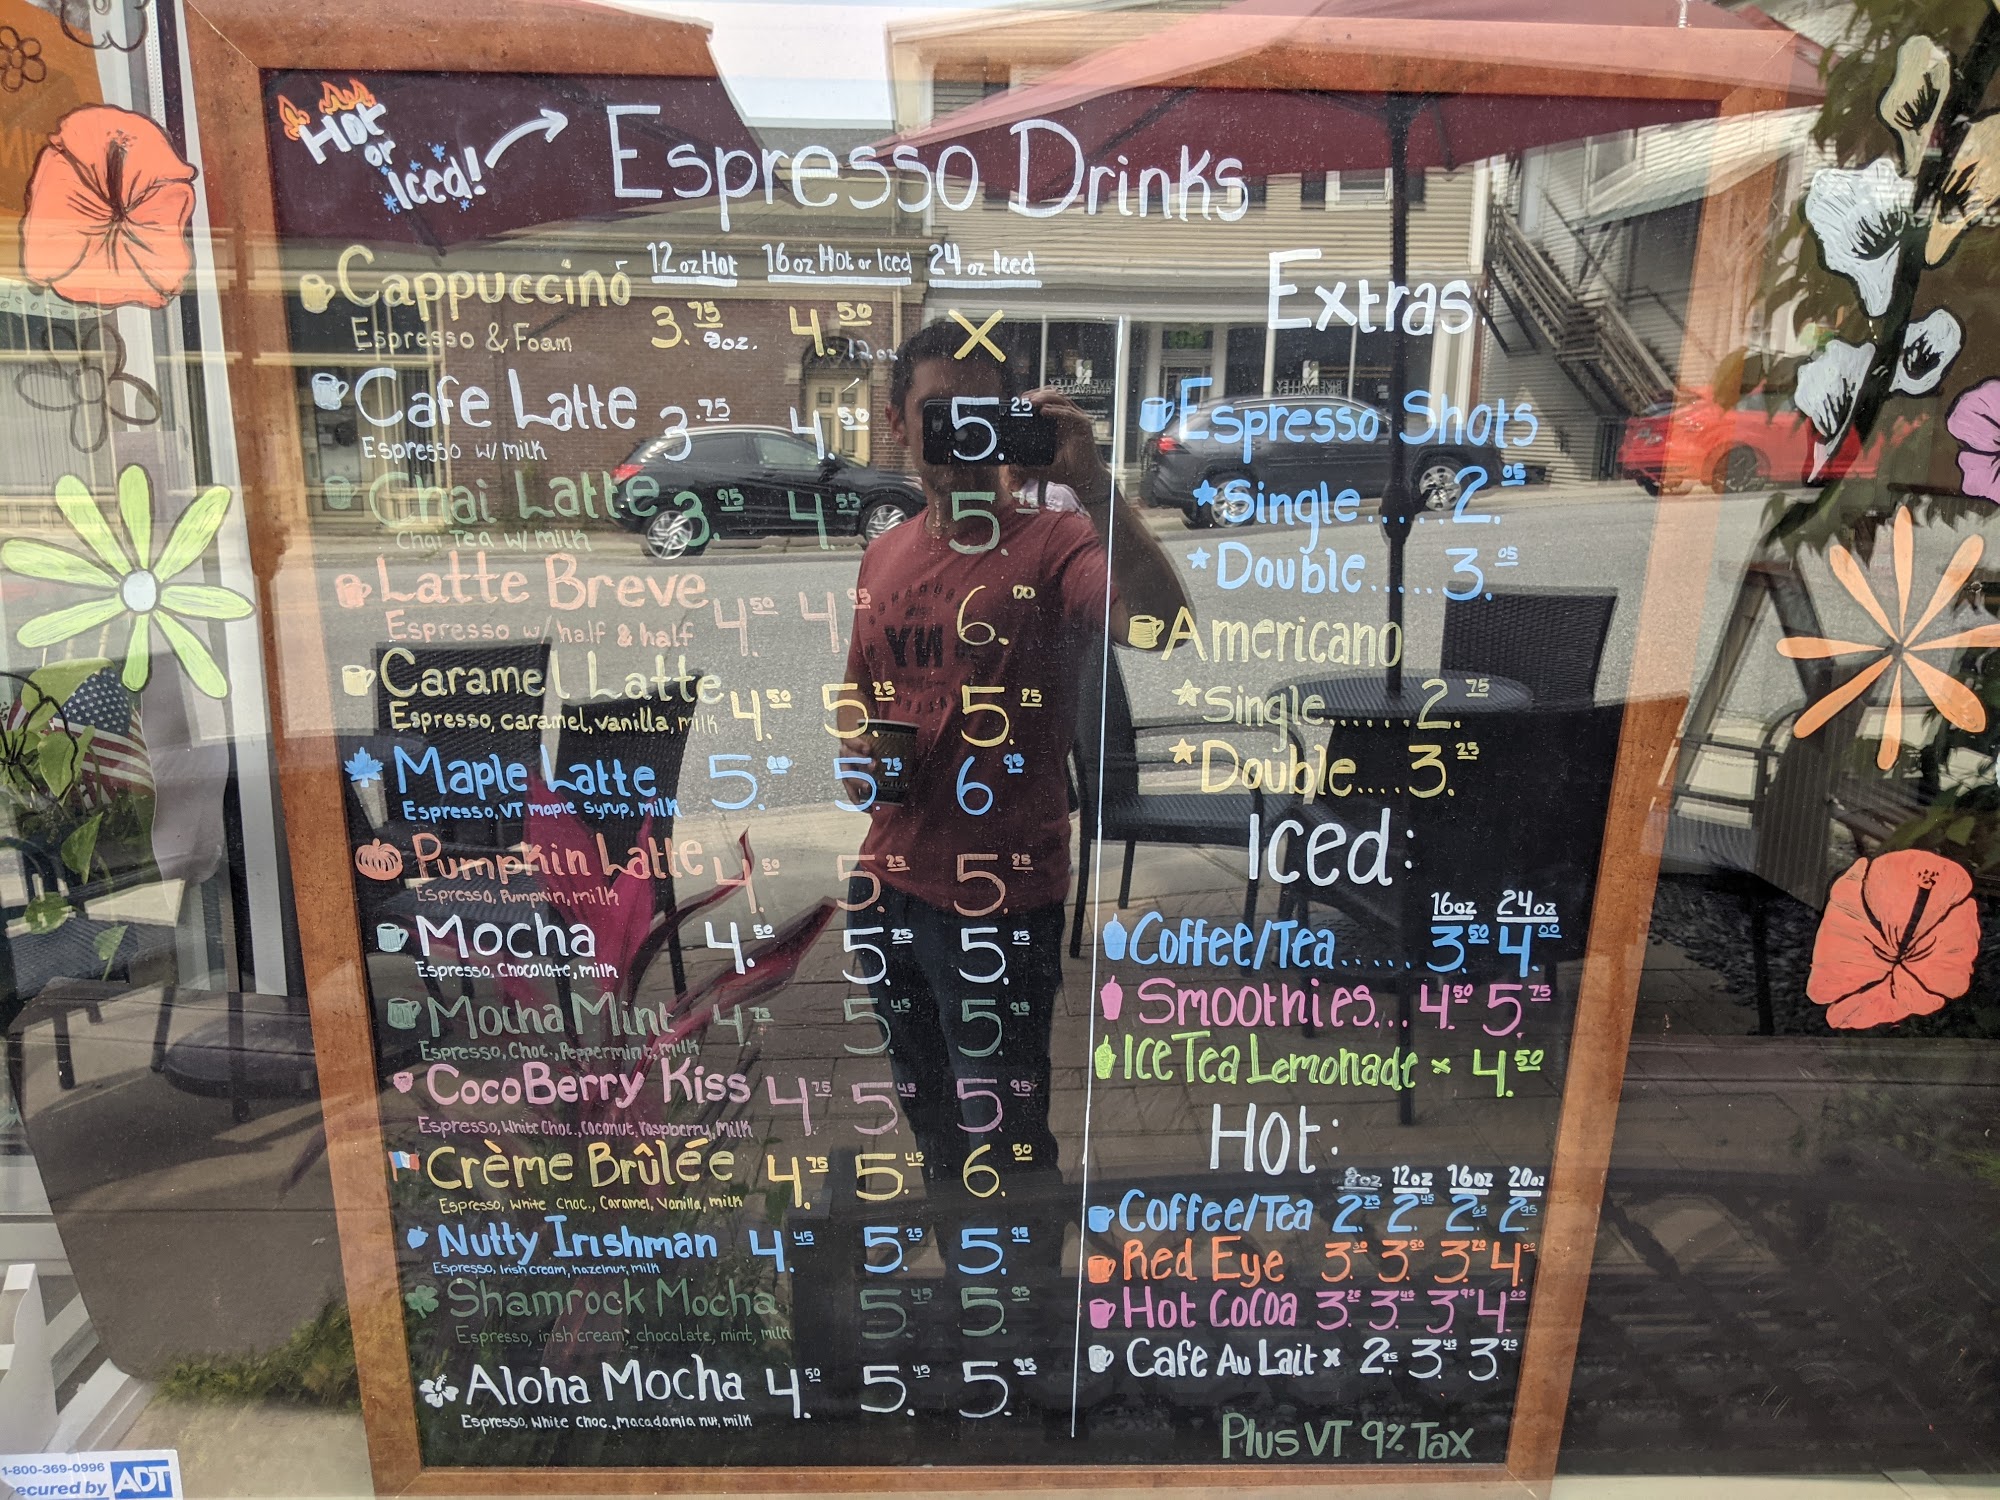 Hot
or
Iced!
Espresso Drinks
12oz Hot 16oz Hot or Iced 24oz Iced
Cappuccino 3.75 8oz. 4.50 12oz X
Espresso & Foam
Cafe Latte 3.75 4.50 5.25
Espresso w/ milk
Chai Latte 3.95 4.55 5.
Chai Tea w/ milk
Latte Breve 4.50 4.95 6.00
Espresso w/ half & half
Caramel Latte 4.50 5.25 5.95
Espresso, caramel, vanilla, milk
Maple Latte 5. 5.75 6.95
Espresso, VT maple syrup, milk
Pumpkin Latte 4.50 5.25 5.95
Espresso, Pumpkin, milk
Mocha 4.50 5.25 5.95
Espresso, Chocolate, milk
Mocha Mint 4.75 5.45 5.95
Espresso, Choc., Peppermint, Milk
CocoBerry Kiss 4.75 5.45 5.95
Espresso, White Choc., Coconut, raspberry, Milk
Crème Brûlée 4.75 5.45 6.50
Espresso, White Choc., Caramel, Vanilla, milk
Nutty Irishman 4.45 5.25 5.95
Espresso, Irish cream, hazelnut, milk
Shamrock Mocha 5.45 5.95
Espresso, irish cream, chocolate, mint, milk
Aloha Mocha 4.50 5.45 5.95
Espresso, White Choc., Macadamia nut, milk
Extras:
Espresso Shots
Single..... 2.05
Double..... 3.05
Americano
Single...... 2.75
Double.... 3.25
Iced:
16oz 24oz
Coffee/Tea..... 3.50 4.00
Smoothies... 4.50 5.75
Ice Tea Lemonade x 4.50
Hot:
8oz 12oz 16oz 20oz
Coffee/Tea 2.25 2.45 2.65 2.95
Red Eye 3. 3.50 3. 4.00
Hot Cocoa 3.25 3.45 3.95 4.00
Cafe Au Lait x 2. 3.45 3.95
Plus VT 9% Tax
1-800-369-0996
ecured by ADT